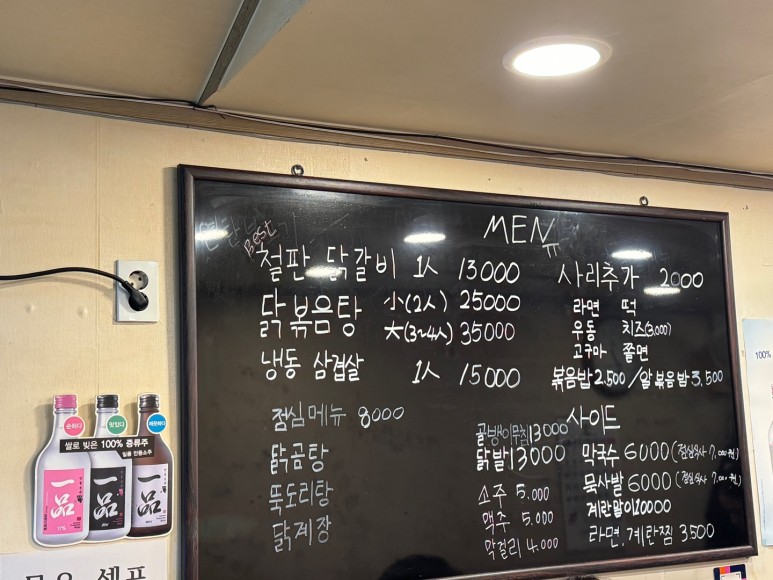 MENU
Best
철판 닭갈비 1人 13000
닭볶음탕 小(2人) 25000
大(3~4人) 35000
냉동 삼겹살 1人 15000
사리추가 2000
라면 떡
우동 치즈(3,000)
고구마 쫄면
볶음밥 2.500 / 알볶음밥 3,500
점심메뉴 8000
닭곰탕
뚝도리탕
닭계장
골뱅이무침 13000
닭발 13000
소주 5.000
맥주 5.000
막걸리 4.000
사이드
막국수 6000 (점심식사 7,000원)
묵사발 6000 (점심식사 7,000원)
계란말이 10000
라면, 계란찜 3500
순하다
맛있다
깨끗하다
쌀로 빚은 100% 증류주
일품 안동소주
一品
一品
一品
17%
100%
셀프